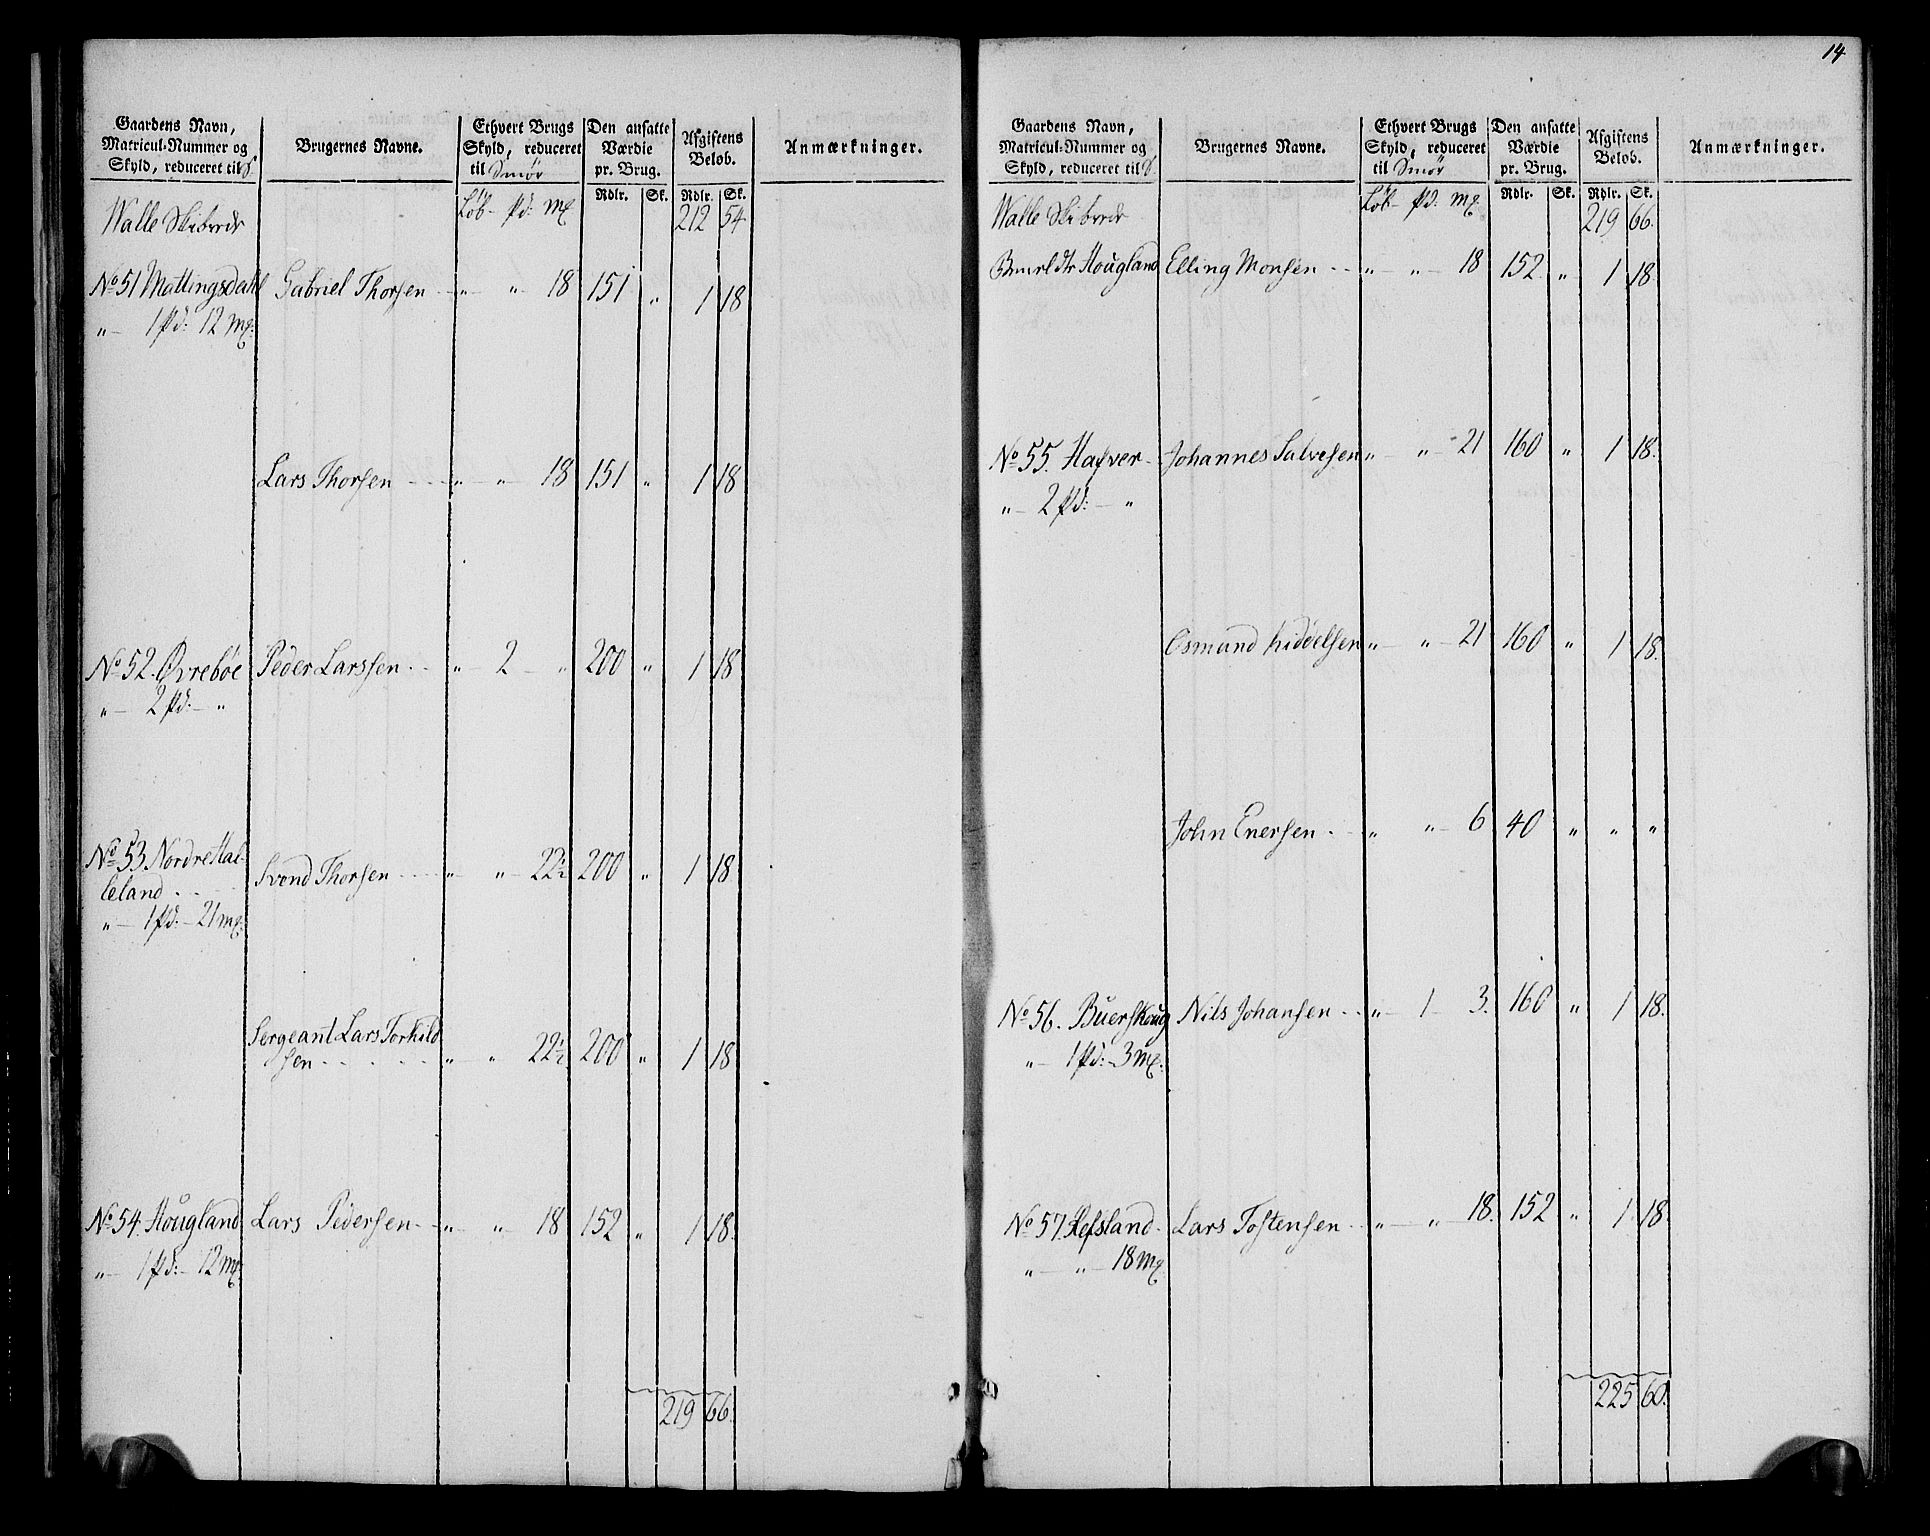 Gaardens Navn, Matricul-Nummer og Skyld, reduceret til S. | Brugernes Navne. | Ethvert Brugs Skyld, reduceret til Smør | Den ansatte Værdie pr. Brug. | Afgiftens Beløb. | Anmærkninger.
Løb - pd: mk | Rdlr. | Sk. | Rdlr. | Sk.
Walle Skibrede | 212 | 54
No 51 Mattingsdahl | Gabriel Thorsen - | „ „ 18 | 151 | „ | 1 | 18
„ - 1 pd: 12 mk:
Lars Thorsen - | „ - „ - 18 | 151 | „ | 1 | 18
No 52. Øvrebøe | Peder Larssen - | „ - 2 - „ | 200 | „ | 1 | 18
„ - 2 pd: - „
No 53 Nordre Hal-
leland - - | Svend Thorsen - | „ „ - 22½ | 200 | „ | 1 | 18
„ - 1 pd: - 21 mk:
Sergeant Lars Torkild
sen - - - | „ „ 22½ | 200 | „ | 1 | 18
No 54. Hougland | Lars Pedersen - | „ - „ - 18 | 152 | „ | 1 | 18.
„ - 1 pd: - 12 mk:
219 | 66.
14
Gaardens Navn, Matricul-Nummer og Skyld, reduceret til S. | Brugernes Navne. | Ethvert Brugs Skyld, reduceret til Smør | Den ansatte Værdie pr. Brug. | Afgiftens Beløb. | Anmærkninger.
Løb - pd: mk | Rdlr. | Sk. | Rdlr. | Sk.
Walle Skibrede | 219 | 66.
Hougland | Elling Monsen - - | „ - „ - 18 | 152 | „ | 1 | 18.
No 55. Hafver - | Johannes Salvesen | „ - „ - 21 | 160 | „ | 1 | 18.
„ - 2 pd: - „
Osmund Kiddelsen | „ - „ - 21 | 160 | „ | 1 | 18.
John Enersen - | „ „ - 6 | 40 | „ | „ | „
No 56. Buerskoug | Nils Johansen - - | „ - 1 - 3. | 160 | „ | 1 | 18.
„ - 1 pd: - 3 mk:
No 57. Refsland - | Lars Tostensen - | „ - „ - 18. | 152 | „ | 1 | 18.
„ - „ - 18 mk
225 | 60.